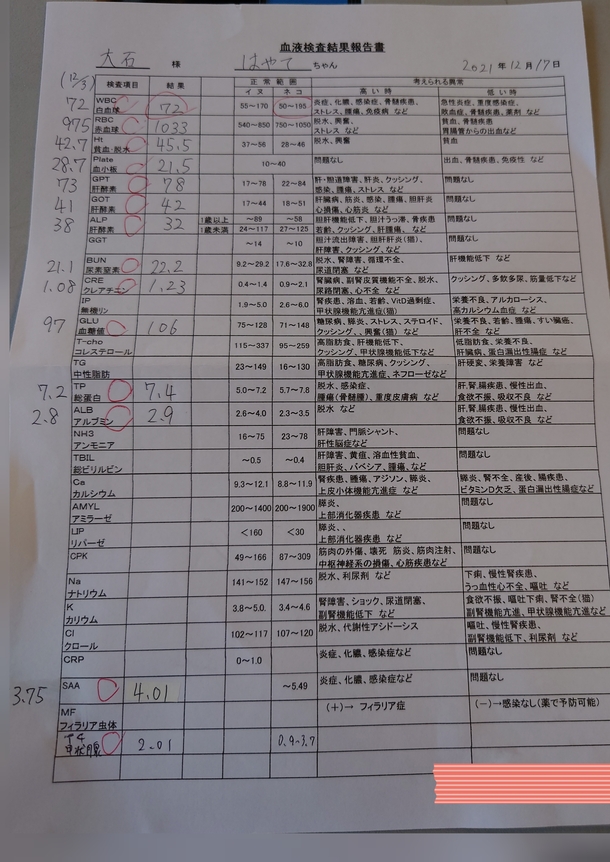 血液検査結果報告書
大石 様 はやて ちゃん 2021年12月17日
(12/3) 検査項目 結果 正常範囲 考えられる異常
イヌ ネコ 高い時 低い時
72 WBC 白血球 72 55~170 50~195 炎症、化膿、感染症、骨髄疾患、ストレス、腫瘍、免疫病 など 急性炎症、重度感染症、敗血症、骨髄疾患、薬剤 など
975 RBC 赤血球 1033 540~850 750~1050 脱水、興奮、ストレス など 貧血、骨髄疾患、胃腸管からの出血など
42.7 Ht 貧血・脱水 45.5 37~56 28~46 脱水、興奮 貧血
28.7 Plate 血小板 21.5 10~40 問題なし 出血、骨髄疾患、免疫性 など
73 GPT 肝酵素 78 17~78 22~84 肝・胆道障害、肝炎、クッシング、感染、腫瘍、ストレス など 問題なし
41 GOT 肝酵素 42 17~44 18~51 肝臓病、筋炎、感染、腫瘍、胆肝炎 心損傷、心筋炎 など 問題なし
38 ALP 肝酵素 32 1歳以上 ~89 ~58 胆肝機能低下、胆汁うっ滞、骨疾患 問題なし
1歳未満 24~117 27~125 若齢、クッシング、肝腫瘍、 など
GGT ~14 ~10 胆汁流出障害、胆肝肝炎(猫)、肝障害、クッシング、など 問題なし
21.1 BUN 尿素窒素 22.2 9.2~29.2 17.6~32.8 脱水、腎障害、循環不全、尿道閉塞 など 肝機能低下 など
1.08 CRE クレアチニン 1.23 0.4~1.4 0.9~2.1 腎臓病、副腎皮質機能不全、脱水、尿路閉塞、心不全 など クッシング、多飲多尿、筋量低下など
IP 無機リン 1.9~5.0 2.6~6.0 腎疾患、溶血、若齢、VitD過剰症、甲状腺機能亢進症(猫) 栄養不良、アルカローシス、高カルシウム血症 など
97 GLU 血糖値 106 75~128 71~148 糖尿病、膵炎、ストレス、ステロイド、クッシング、、興奮(猫) など 栄養不良、若齢、腫瘍、すい臓癌、肝不全 など
T-cho コレステロール 115~337 95~259 高脂肪食、肝機能低下、クッシング、甲状腺機能低下など 低脂肪食、栄養不良、肝臓病、蛋白漏出性腸症 など
TG 中性脂肪 23~149 16~130 高脂肪食、糖尿病、クッシング、甲状腺機能亢進症、ネフローゼなど 肝硬変、栄養障害 など
7.2 TP 総蛋白 7.4 5.0~7.2 5.7~7.8 脱水、感染症、腫瘍(骨髄腫)、重度皮膚病 など 肝,腎,腸疾患、慢性出血、食欲不振、吸収不良 など
2.8 ALB アルブミン 2.9 2.6~4.0 2.3~3.5 脱水 など 肝,腎,腸疾患、慢性出血、食欲不振、吸収不良 など
NH3 アンモニア 16~75 23~78 肝障害、門脈シャント、肝性脳症など 問題なし
TBIL 総ビリルビン ~0.5 ~0.4 肝障害、黄疸、溶血性貧血、胆肝炎、バベシア、腫瘍、など 問題なし
Ca カルシウム 9.3~12.1 8.8~11.9 腎疾患、腫瘍、アジソン、膵炎、上皮小体機能亢進症 など 膵炎、腎不全、産後、腸疾患、ビタミンD欠乏、蛋白漏出性腸症など
AMYL アミラーゼ 200~1400 200~1900 膵炎、上部消化器疾患 など 問題なし
LIP リパーゼ <160 <30 膵炎、、上部消化器疾患 など 問題なし
CPK 49~166 87~309 筋肉の外傷、壊死 筋炎、筋肉注射、中枢神経系の損傷、心筋疾患など 問題なし
Na ナトリウム 141~152 147~156 脱水、利尿剤 など 下痢、慢性腎疾患、うっ血性心不全、嘔吐 など
K カリウム 3.8~5.0. 3.4~4.6 腎障害、ショック、尿道閉塞、副腎機能低下 など 食欲不振、嘔吐下痢、腎不全(猫) 副腎機能亢進、甲状腺機能亢進など
Cl クロール 102~117 107~120 脱水、代謝性アシドーシス 嘔吐、慢性腎疾患、副腎機能低下、利尿剤 など
CRP 0~1.0 炎症、化膿、感染症など 問題なし
3.75 SAA 4.01 ~5.49 炎症、化膿、感染症など 問題なし
MF フィラリア虫体 (+)→ フィラリア症 (-)→感染なし(薬で予防可能)
T4 甲状腺 2.01 0.9~3.7